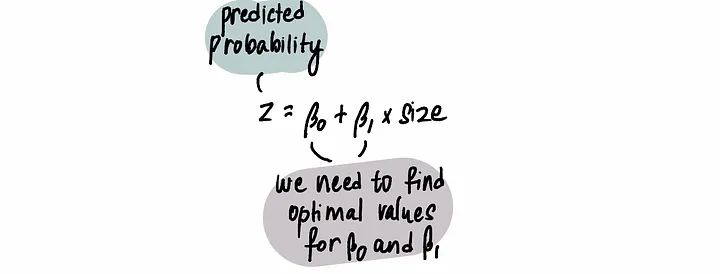 predicted
probability
z = β₀ + β₁ x size
we need to find
optimal values
for β₀ and β₁